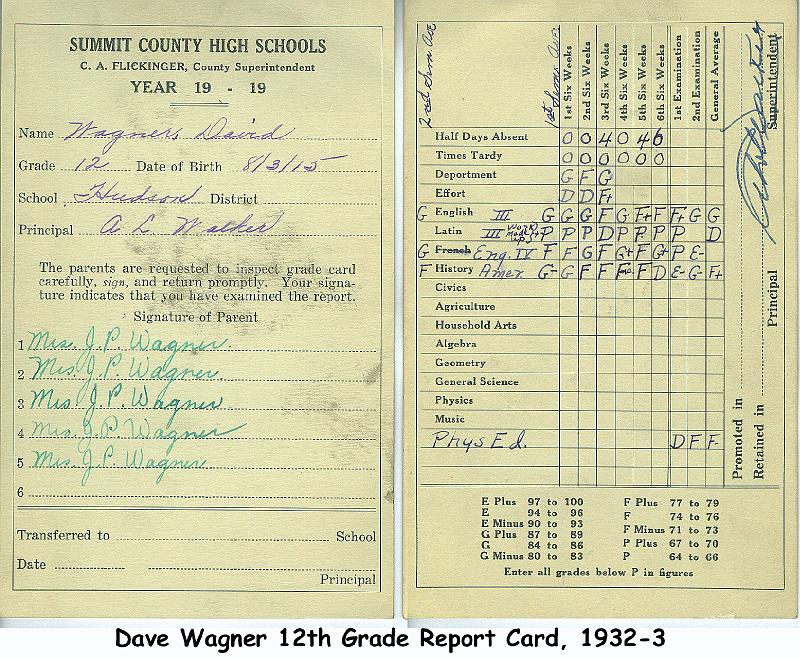 SUMMIT COUNTY HIGH SCHOOLS
C. A. FLICKINGER, County Superintendent
YEAR 19 - 19
Name Wagner, David
Grade 12 Date of Birth 8/3/15
School Hudson District
Principal A L Walker
The parents are requested to inspect grade card
carefully, sign, and return promptly. Your signa-
ture indicates that you have examined the report.
Signature of Parent
1 Mrs. J. P. Wagner
2 Mrs. J. P. Wagner
3 Mrs. J. P. Wagner
4 Mrs. J. P. Wagner
5 Mrs. J. P. Wagner
6
Transferred to School
Date
Principal
2nd Sem Ave
1st Sem. Ave.
1st Six Weeks
2nd Six Weeks
3rd Six Weeks
4th Six Weeks
5th Six Weeks
6th Six Weeks
1st Examination
2nd Examination
General Average
Half Days Absent 0 0 4 0 4 6
Times Tardy 0 0 0 0 0 0
Department G F G
Effort D D F+
G English III G G G F G F+ F F+ G G
Latin III P P P D P P P P D
G French Eng. IV F F G F G+ F G+ P E-
F History Amer. G- G F F F F D E- G- F+
Civics
Agriculture
Household Arts
Algebra
Geometry
General Science
Physics
Music
Phys Ed. D F F-
Promoted in
Retained in
Principal
Superintendent
E Plus 97 to 100
E 94 to 96
E Minus 90 to 93
G Plus 87 to 89
G 84 to 86
G Minus 80 to 83
F Plus 77 to 79
F 74 to 76
F Minus 71 to 73
P Plus 67 to 70
P 64 to 66
Enter all grades below P in figures
Dave Wagner 12th Grade Report Card, 1932-3